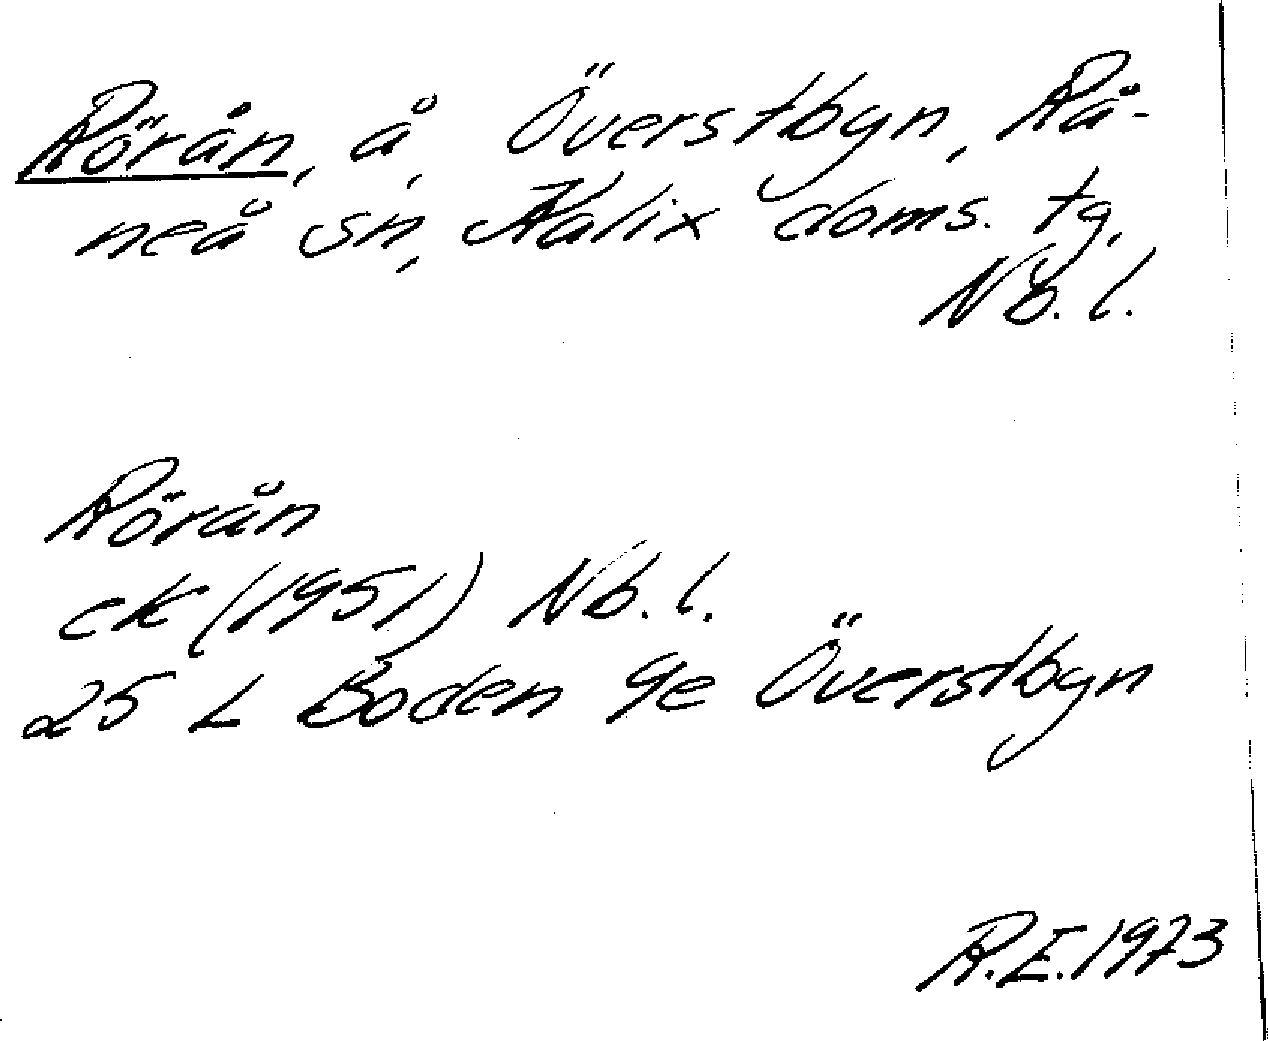 Rörån, å, Överstbyn, Rå-
neå sn, Kalix doms. tg,
Nb. l.
Rörån
ek (1951) Nb. l.
25 L Boden 9e Överstbyn
R.E. 1973